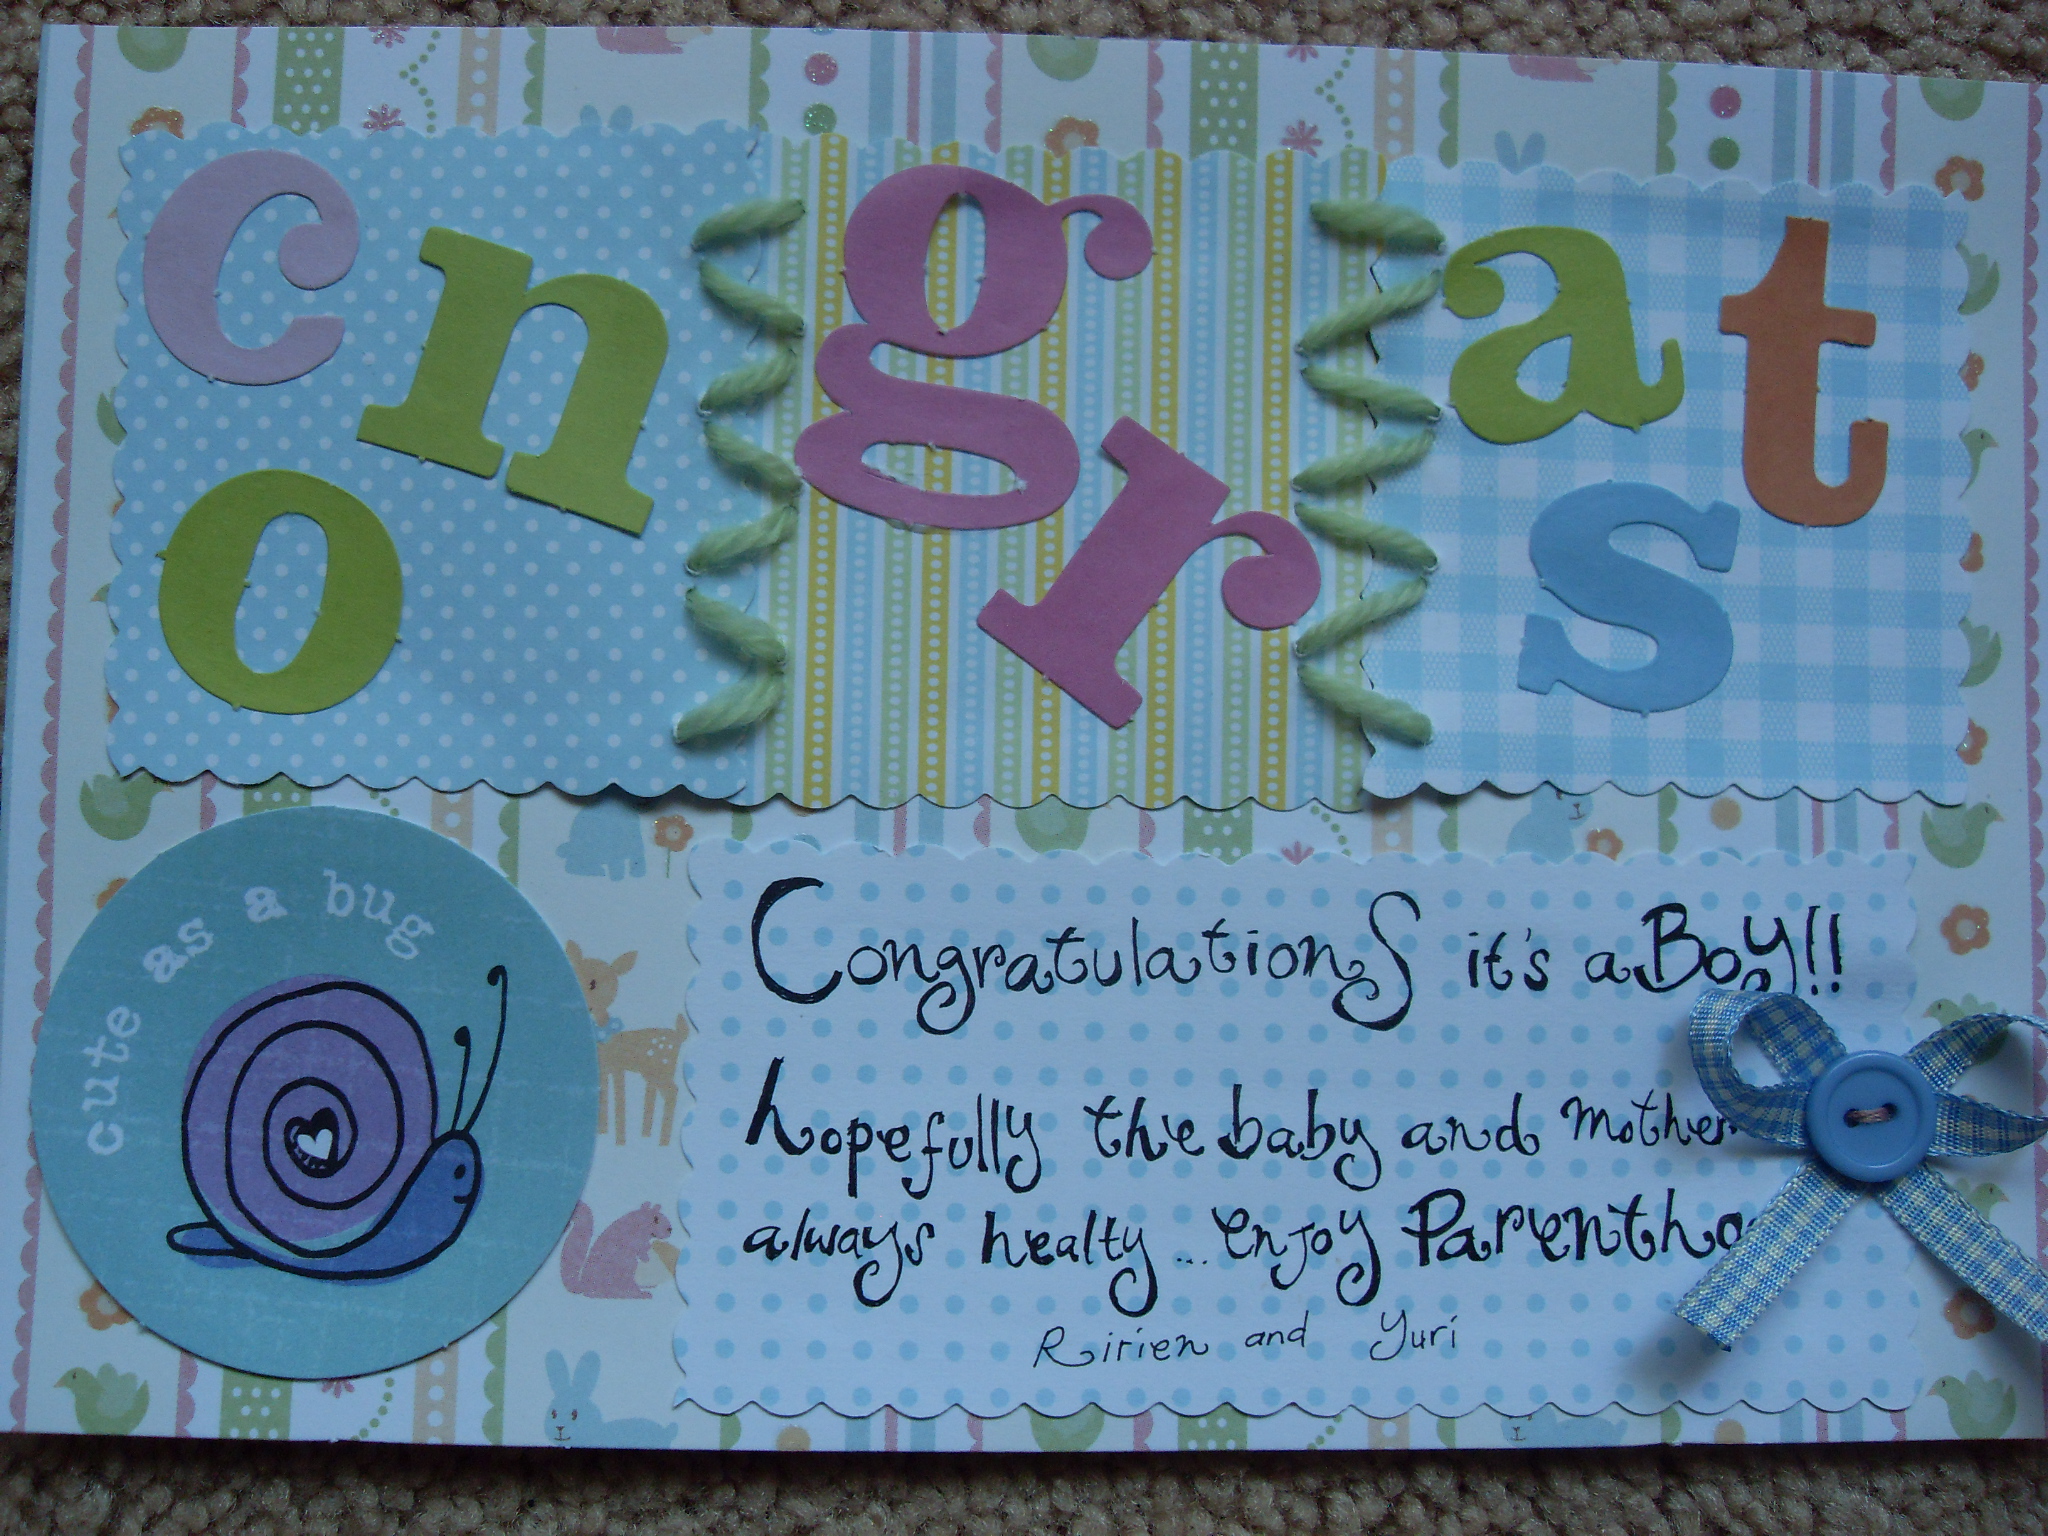 congrats
cute as a bug
CongratulationS it's a Boy!!
hopefully the baby and mother
always healty... enjoy
Ririen and Yuri